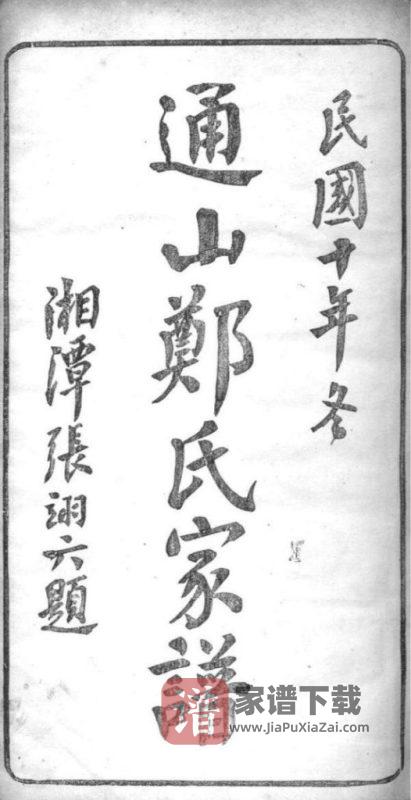 民國十年冬
通山鄭氏家譜
湘潭張翊六題
谱
家谱下载
www.JiaPuXiaZai.com